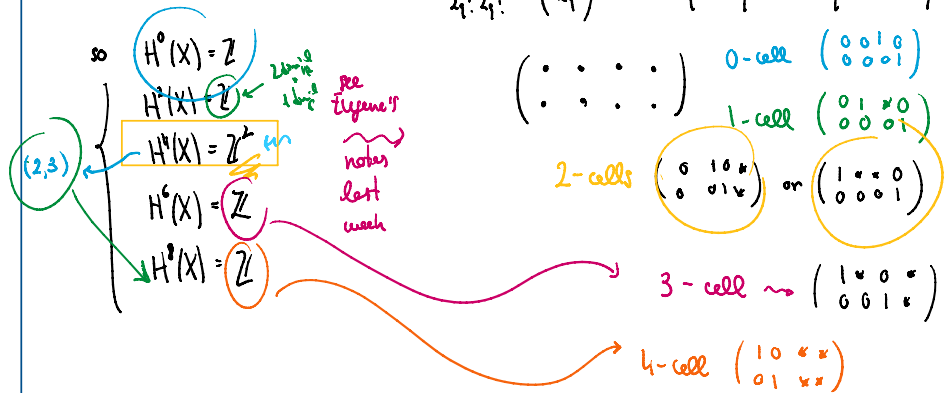 2!·2!
so
H⁰(X) = ℤ
H²(X) = ℤ
H⁴(X) = ℤ²
H⁶(X) = ℤ
H⁸(X) = ℤ
(2,3)
see
Eugene's
notes
last
week
( · · · ·
· · · · )
0-cell ( 0 0 1 0
0 0 0 1 )
1-cell ( 0 1 * 0
0 0 0 1 )
2-cells ( 0 1 0 *
0 0 1 * ) or ( 1 * * 0
0 0 0 1 )
3-cell ⇝ ( 1 * 0 *
0 0 1 * )
4-cell ( 1 0 * *
0 1 * * )